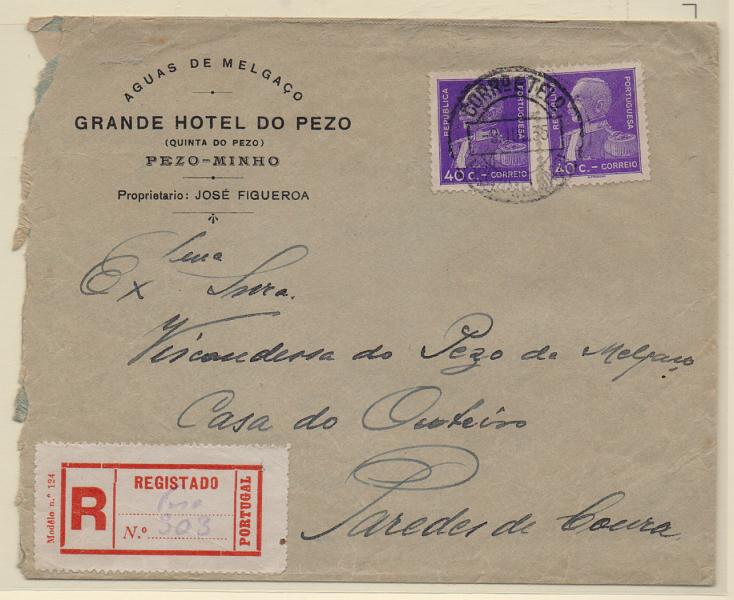 AGUAS DE MELGAÇO
GRANDE HOTEL DO PEZO
(QUINTA DO PEZO)
PEZO-MINHO
Proprietario: JOSÉ FIGUEROA
REPUBLICA PORTUGUESA
40 c. - CORREIO
PORTUGUESA
40 c. - CORREIO
CORRO E TELO
35
Exma Snra.
Viscondessa do Pezo de Melgaço
Casa do Outeiro
Paredes de Coura
Modêlo n.º 124
R
REGISTADO
N.º 303
PORTUGAL